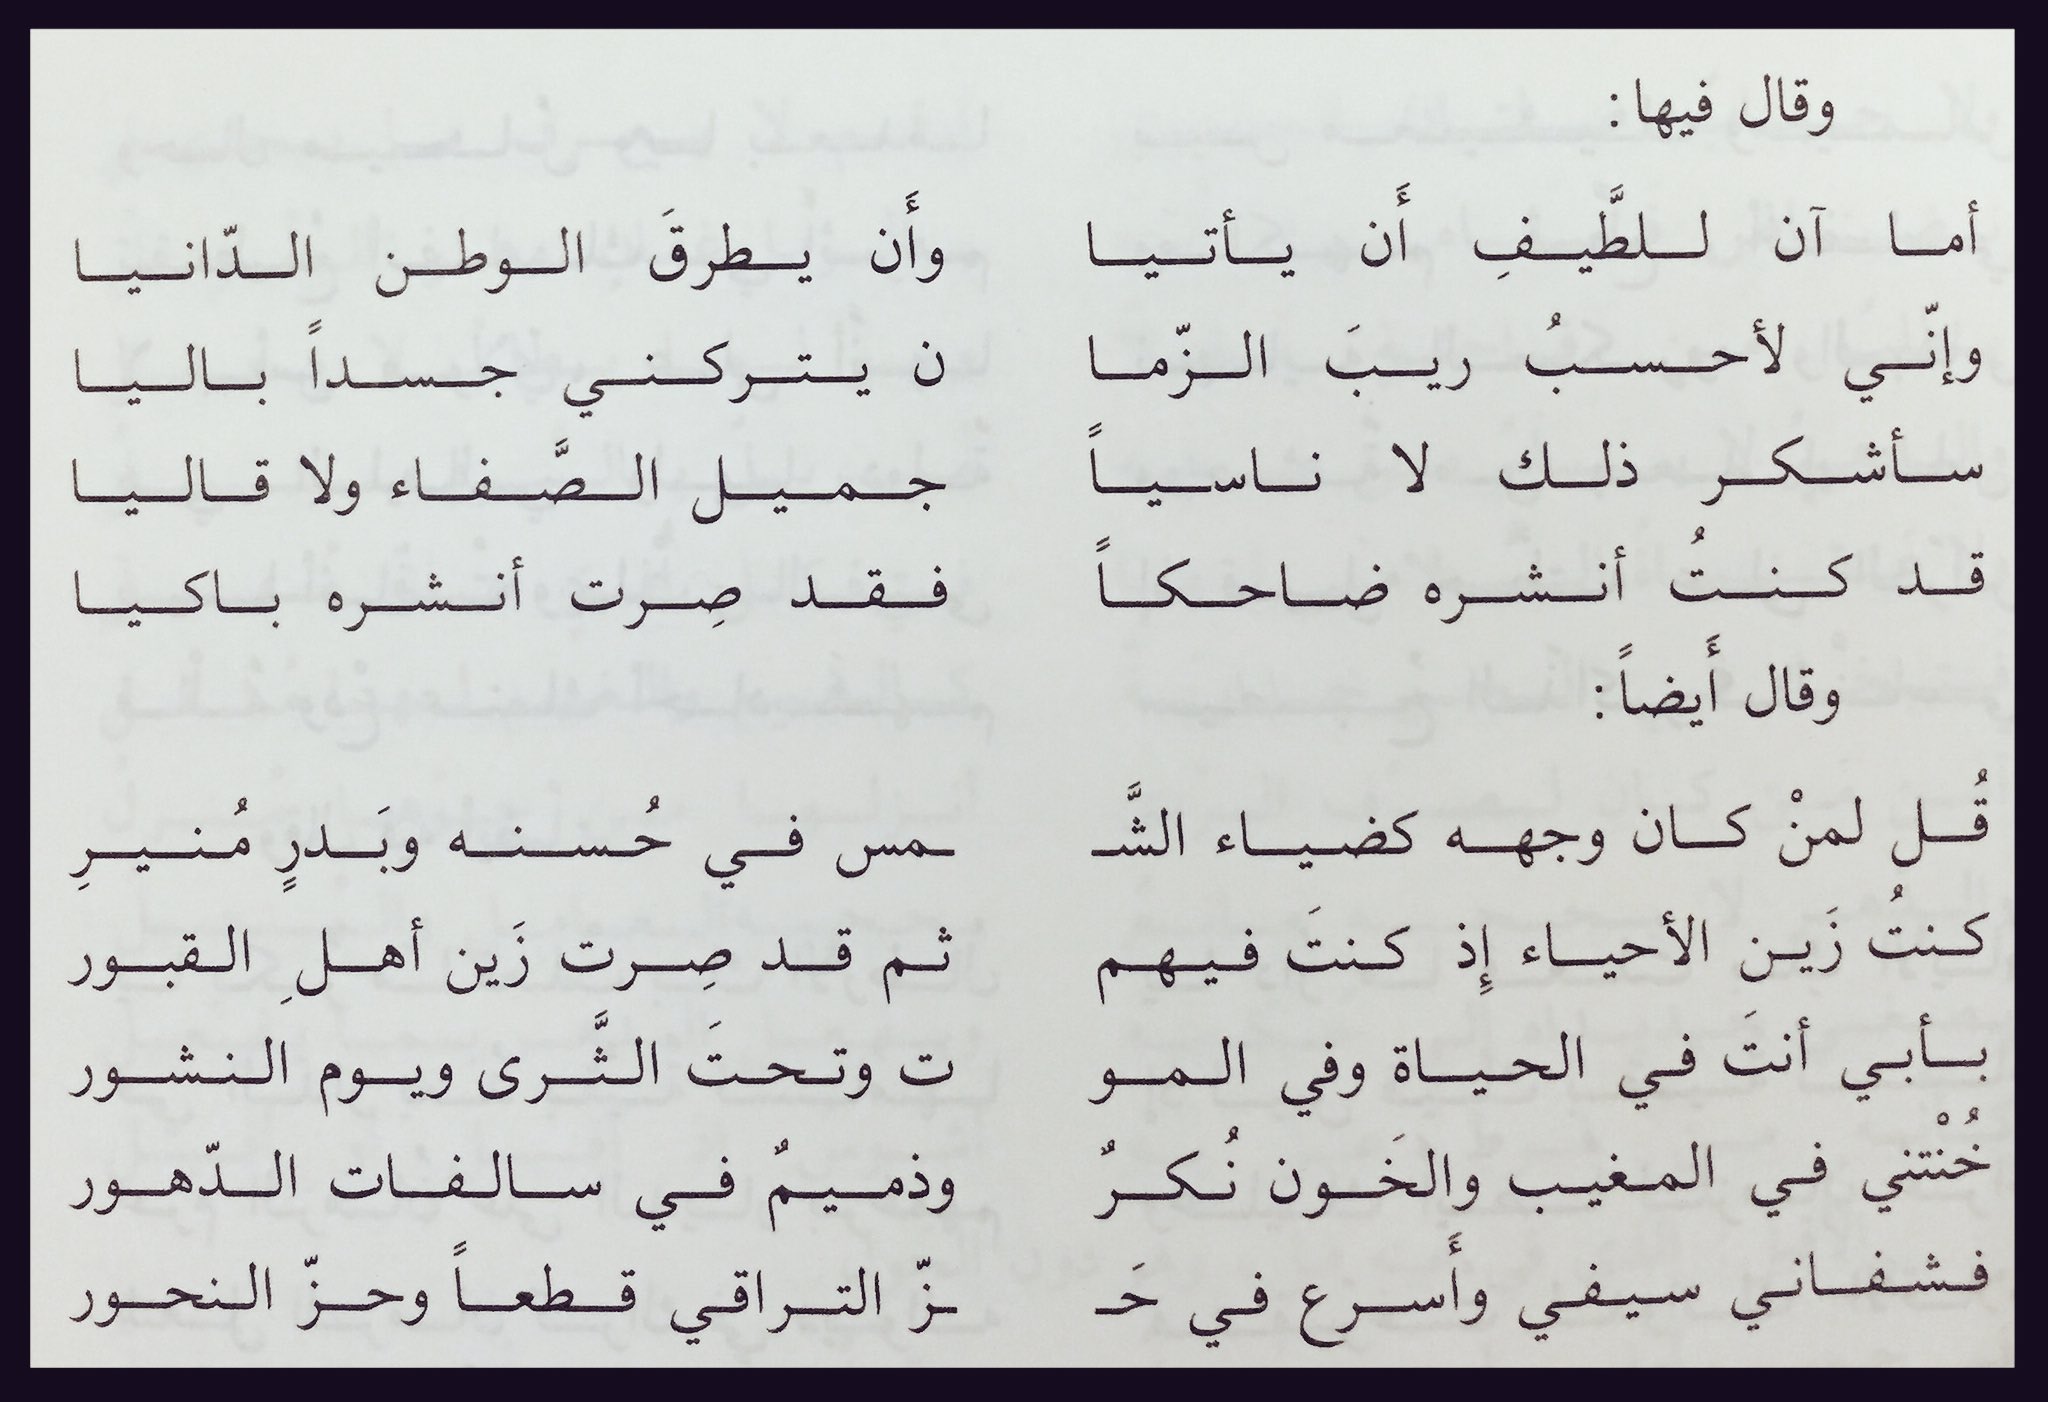 وقال فيها:
أما آن للطَّيفِ أَن يأتيا وأَن يطرقَ الوطن الدّانيا
وإنّي لأحسبُ ريبَ الزّما ن يتركني جسداً باليا
سأشكر ذلك لا ناسياً جميل الصَّفاء ولا قاليا
قد كنتُ أنشره ضاحكاً فقد صِرت أنشره باكيا
وقال أَيضاً:
قُل لمنْ كان وجهه كضياء الشَّـ ـمس في حُسنه وبَدرٍ مُنيرِ
كنتُ زَين الأحياء إِذ كنتَ فيهم ثم قد صِرت زَين أهلِ القبور
بأبي أنتَ في الحياة وفي المو ت وتحتَ الثَّرى ويوم النشور
خُنْتني في المغيب والخَون نُكرٌ وذميمٌ في سالفات الدّهور
فشفاني سيفي وأَسرع في حَـ ـزّ التراقي قطعاً وحزّ النحور